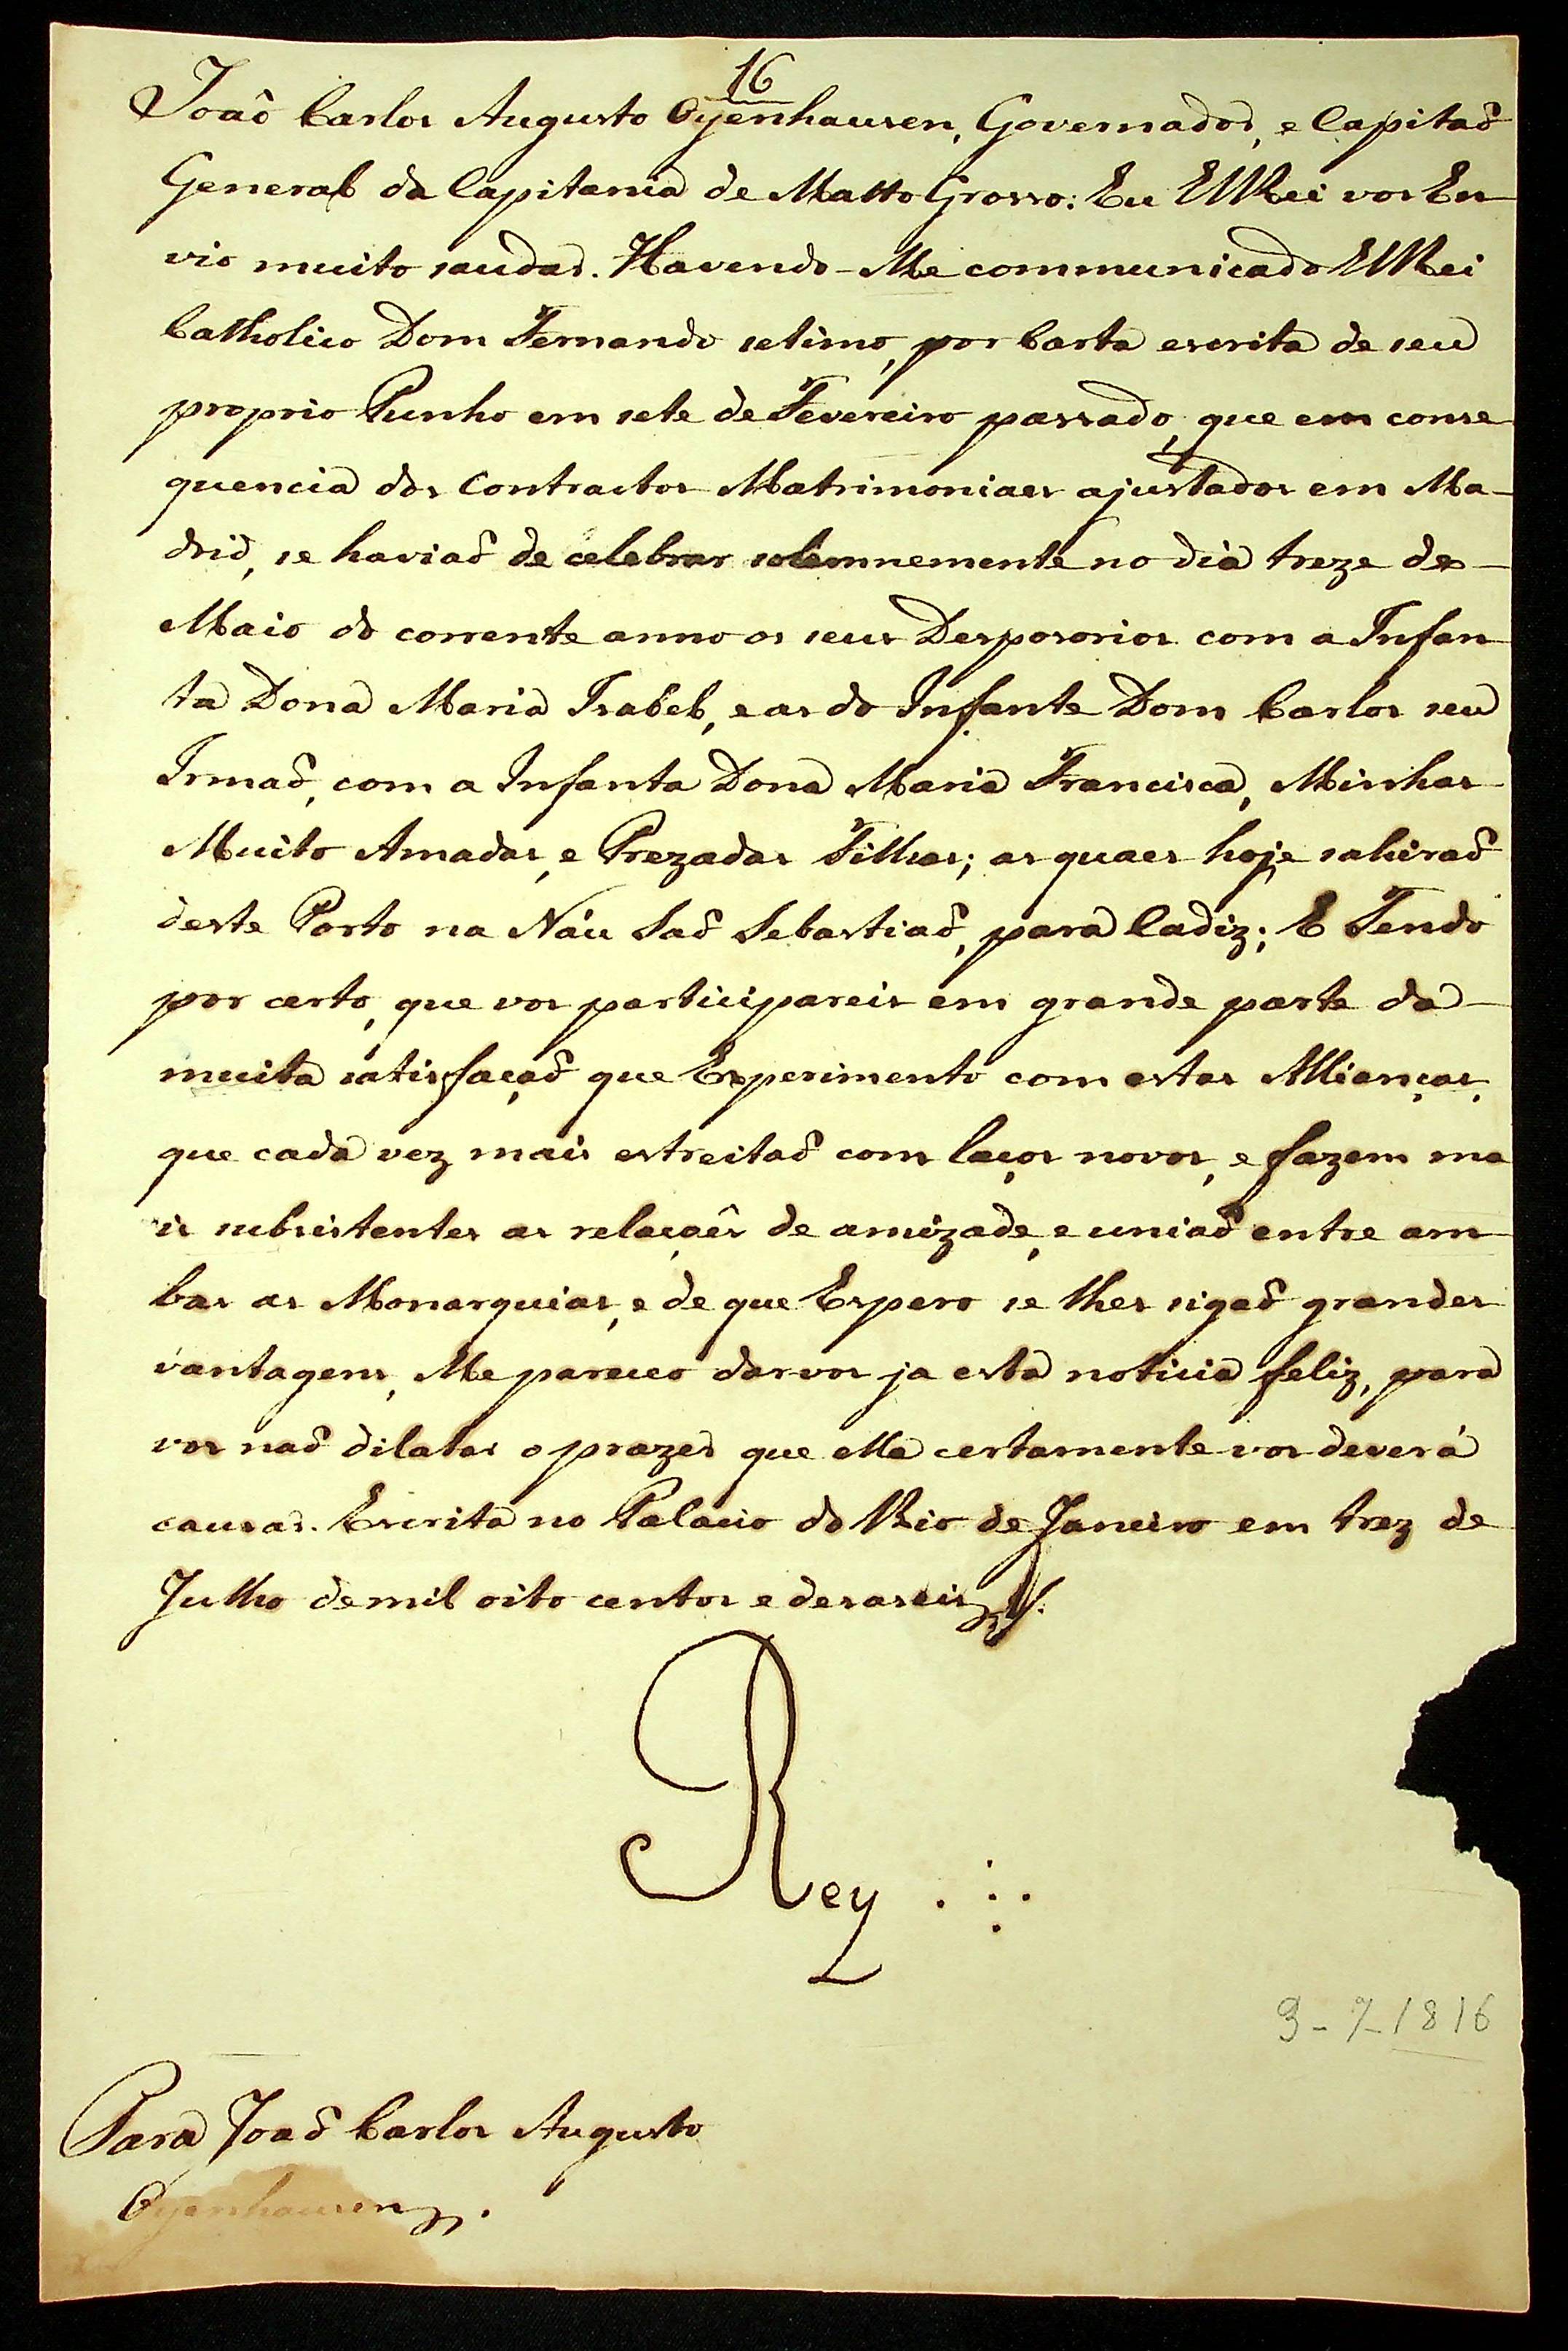 16
João Carlos Augusto Oyenhausen, Governador, e Capitaõ
General da Capitania de Matto Grosso: Eu ElRei vos En-
vio muito saudar. Havendo-Me communicado ElRei
Catholico Dom Fernando setimo, por Carta escrita de seu
proprio Punho em sete de Fevereiro passado, que em conse-
quencia dos Contractos Matrimoniaes ajustados em Ma-
drid, se haviaõ de celebrar solemnemente no dia treze de
Maio do corrente anno os seus Desposorios com a Infan-
ta Dona Maria Isabel, e as do Infante Dom Carlos seu
Irmaõ, com a Infanta Dona Maria Francisca, Minhas
Muito Amadas, e Prezadas Filhas; as quaes hoje sahiraõ
deste Porto na Náu Saõ Sebastiaõ, para Cadiz; E Tendo
por certo, que vos participareis em grande parte da
muita satisfaçaõ que Experimento com estas Allianças,
que cada vez mais estreitaõ com laços novos, e fazem ma
is subsistentes as relaçoês de amizade, e uniaõ entre am-
bas as Monarquias, e de que Espero se lhes sigaõ grandes
vantagens, Me pareceo darvos ja esta noticia feliz, para
vos naõ dilatar o prazer que ella certamente vos deverá
causar. Escrita no Palacio do Rio de Janeiro em trez de
Julho de mil oito centos e desaseis
Rey
3-7-1816
Para Joaõ Carlos Augusto
Oyenhausen.